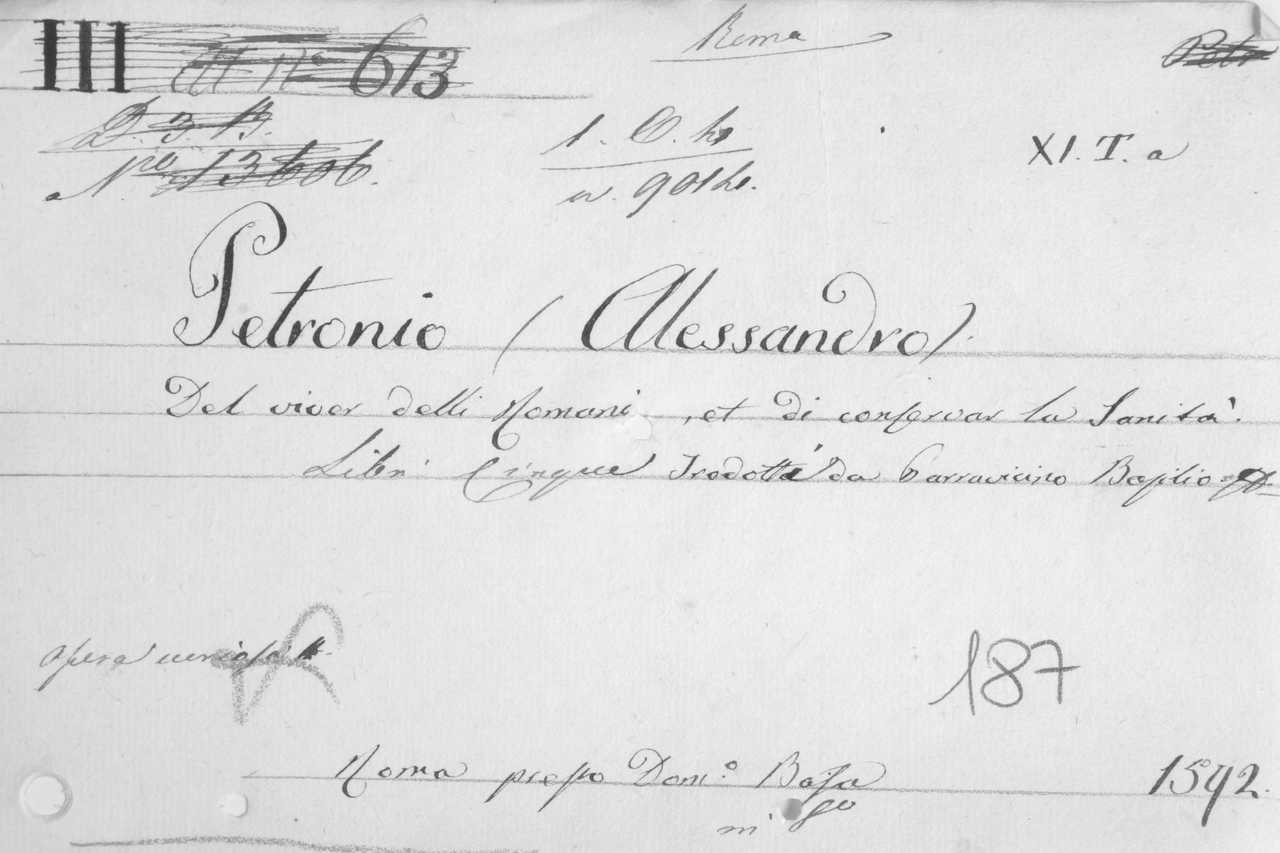 III 613 Roma Petr
D. 3. B. 1. C. XI. T. a
a Nro 13606.
Petronio (Alessandro).
Del viver delli Romani, et di conservar la Sanità.
Libri Cinque Trodotta da Parravicino Basilio
opera
187
Roma presso Dom.º Basa 1592.
in